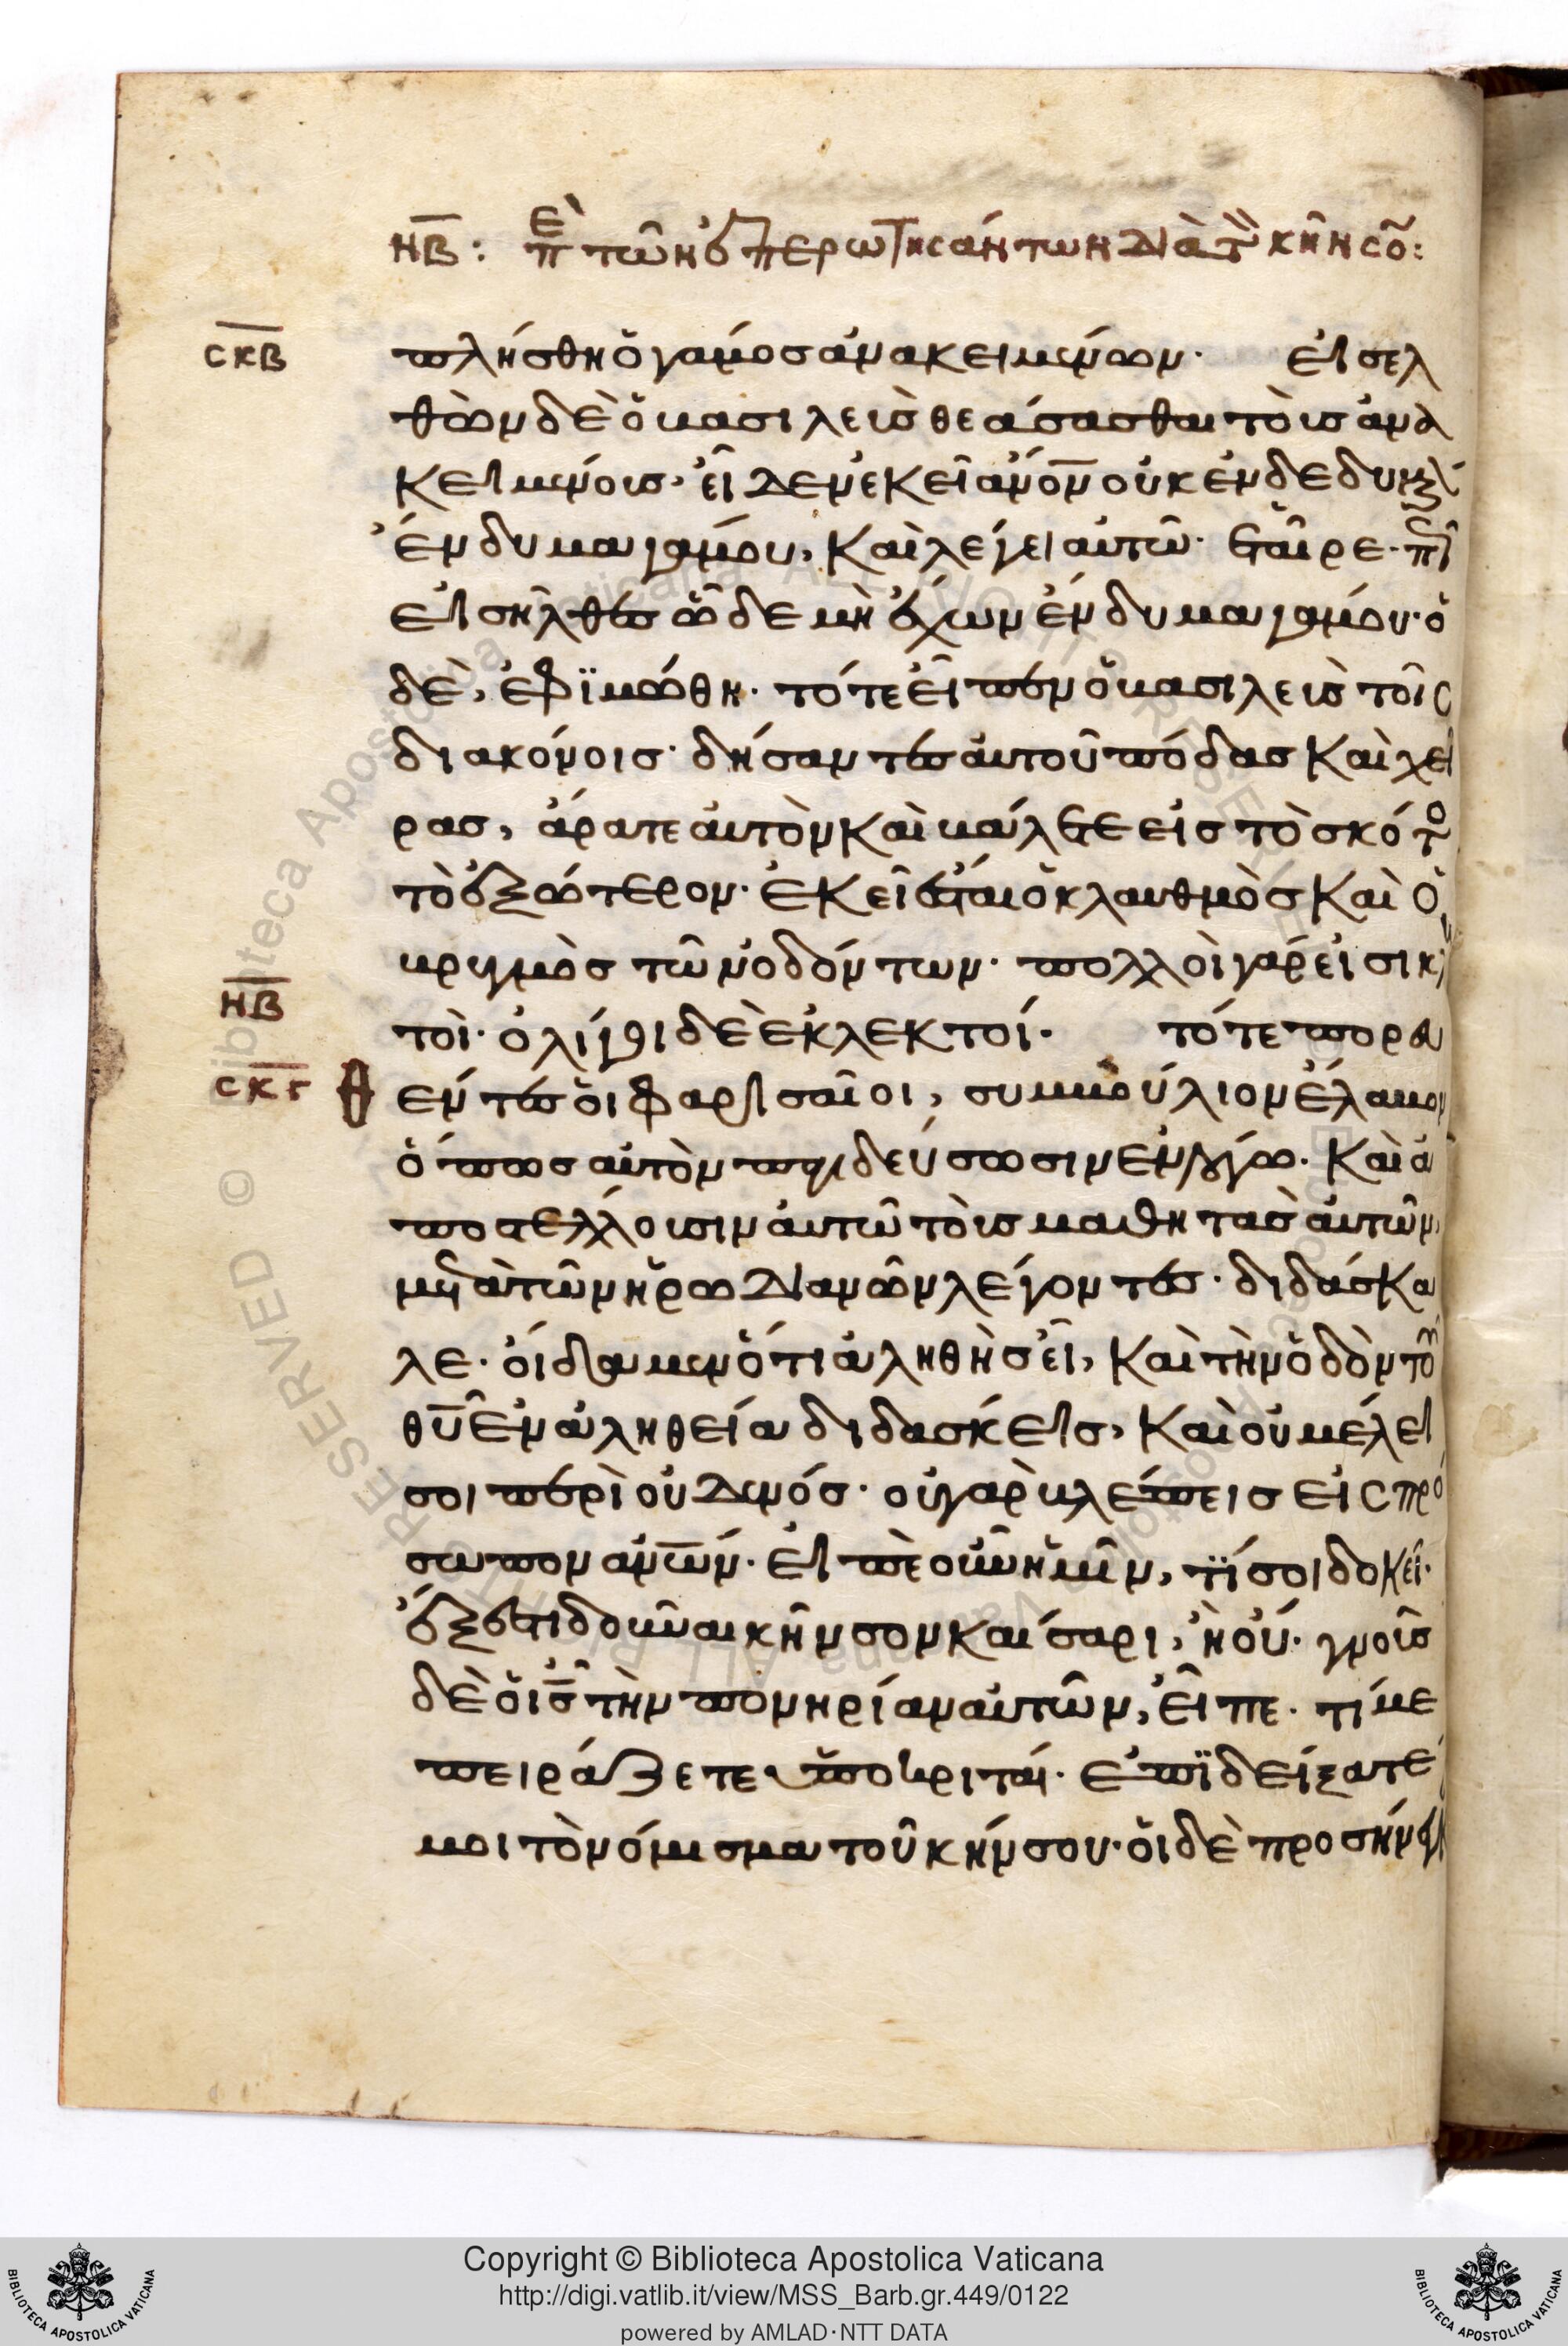 ΗΒ: ΕΠΙ ΤῶΝ ἐΠΕΡΩΤΗΣΆΝΤΩΝ ΔΙᾺ ΤῸΝ ΚΗ͂ΝΣΟ͂:
ΣΚΒ
πλήσθη ὁ γάμος ἀνακειμένων· εἰσελ
θὼν δὲ ὁ βασιλεὺς θεάσασθαι τοὺς ἀνα
κειμένους· εἶδεν ἐκεῖ ἄν̅ο̅ν̅ οὐκ ἐνδεδυμέ
ἔνδυμα γάμου, καὶ λέγει αὐτῶ· ἑταῖρε· πῶ
εἰσῆλθες ὧδε μὴ ἔχων ἔνδυμα γάμου· ὁ
δὲ, ἐφϊμώθη· τότε εἶπεν ὁ βασιλεὺς τοῖς
διακόνοις· δήσαντες αὐτοῦ πόδας καὶ χεῖ
ρας, ἄρατε αὐτὸν καὶ βάλετε εἰς τὸ σκότο
τὸ ἐξώτερον· ἐκεῖ ἔσται ὁ κλαυθμὸς καὶ ὁ
βρυγμὸς τῶν ὀδόντων· πολλοὶ γάρ εἰσι κλ
ΗΒ
τοὶ· ὀλίγοι δὲ ἐκλεκτοί· τότε πορευ
ΣΚΓ
εντες οἱ φαρισαῖοι, συμβούλιον ἔλαβον
ὅπως αὐτὸν παγιδεύσωσιν ἐν λόγω. καὶ ἀ
ποστέλλουσιν αὐτῶ τοὺς μαθητὰς αὐτῶν,
μετὰ τῶν ἡρωδιανῶν λέγοντες· διδάσκα
λε· οἴδαμεν ὅτι ἀληθὴς εἶ, καὶ τὴν ὁδὸν τοῦ
θ̅υ̅ ἐν ἀληθεία διδάσκεις, καὶ οὐ μέλει
σοι περὶ οὐδενός· οὐ γὰρ βλέπεις εἰς πρό
σωπον ἀν̅ω̅ν̅· εἰπὲ οὖν ἡμῖν, τϊ σοι δοκεῖ·
ἔξεστι δοῦναι κῆνσον καίσαρι, ἢ οὔ· γνοὺς
δὲ ὁ ι̅ς̅ τὴν πονηρίαν αὐτῶν, εἶπε· τί με
πειράζετε ὑποκριταί· ἐπϊδείξατέ
μοι τὸ νόμισμα τοῦ κήνσου· οἱ δὲ προσήνεγ
Copyright © Biblioteca Apostolica Vaticana
http://digi.vatlib.it/view/MSS_Barb.gr.449/0122
powered by AMLAD·NTT DATA